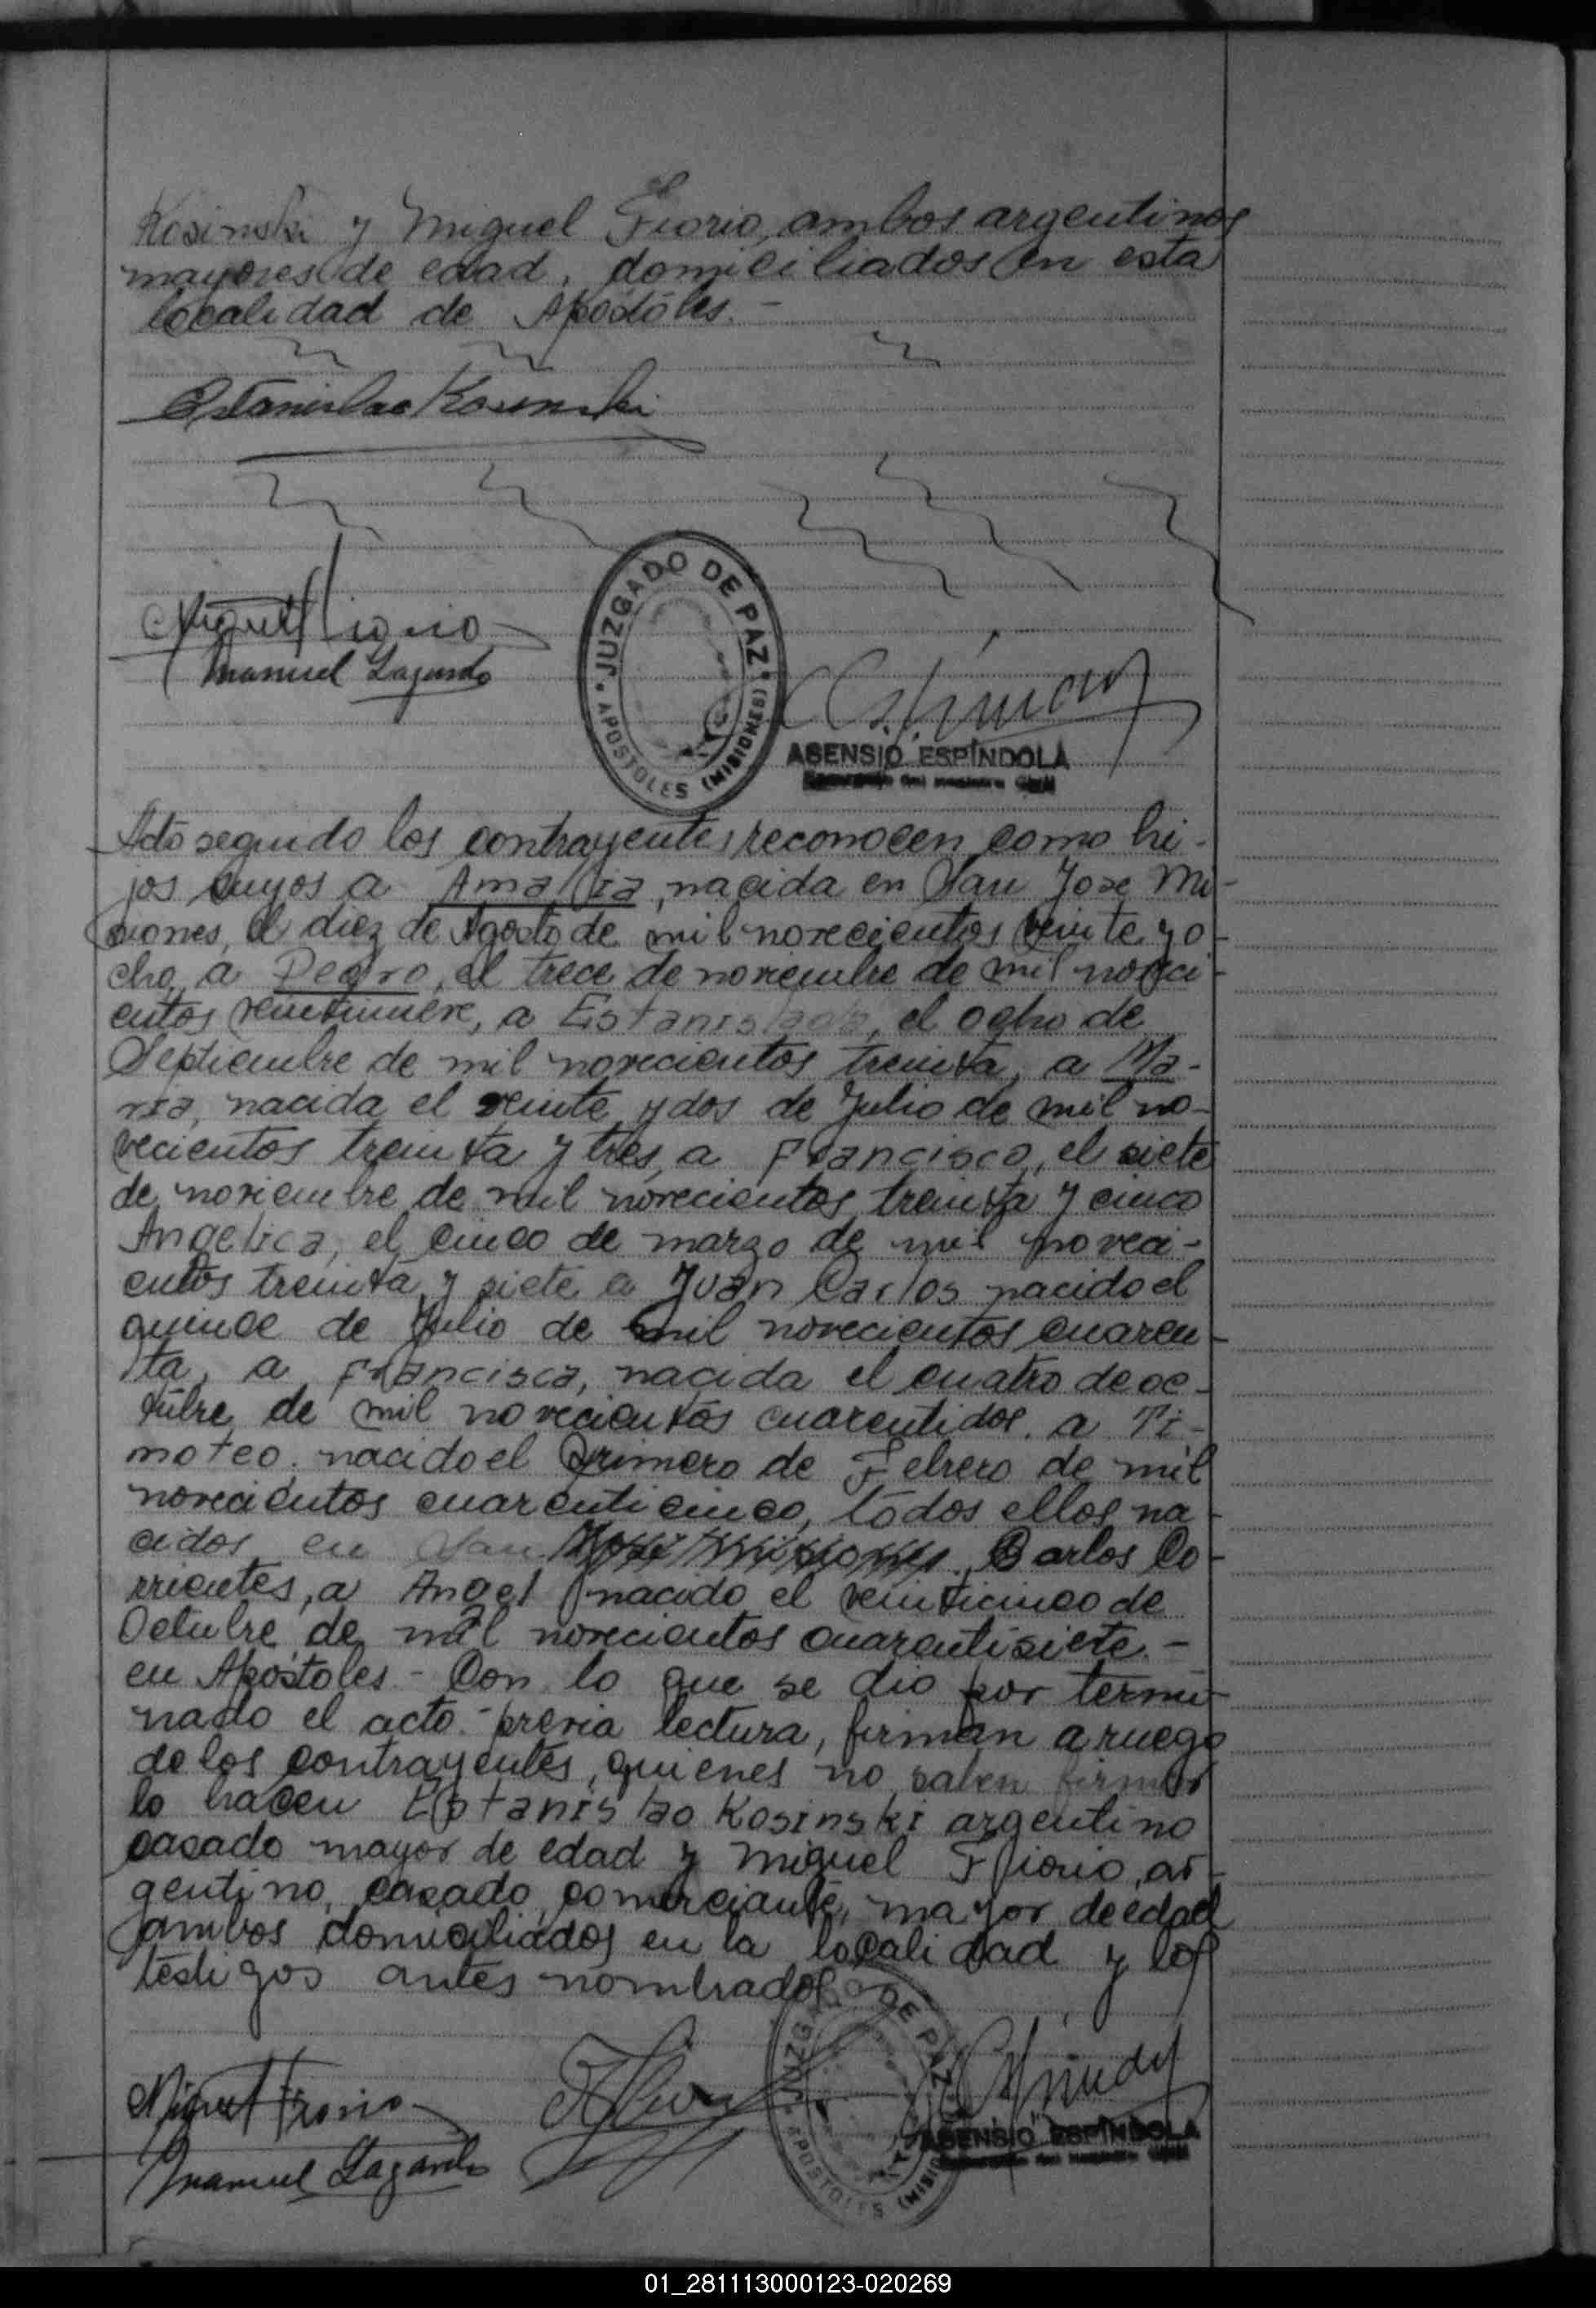 Kosinski y Miguel Fiorio, ambos argentinos
mayores de edad, domiciliados en esta
localidad de Apóstoles.-
Estanislao Kosinski
Miguel Fiorio
Manuel
JUZGADO DE PAZ
APOSTOLES (MISIONES)
ASENSIO ESPÍNDOLA
Encargado del Registro Civil
Acto segundo los contrayentes reconocen como hi-
jos suyos a Amalia, nacida en San José Mi-
siones, el diez de Agosto de mil novecientos veinte y o-
cho, a Pedro, el trece de noviembre de mil noveci-
entos veintinueve, a Estanislao, el ocho de
Septiembre de mil novecientos treinta, a Ma-
ria, nacida el veinte y dos de Julio de mil no-
vecientos treinta y tres, a Francisco, el siete
de noviembre de mil novecientos treinta y cinco
Angelica, el cinco de marzo de mil noveci-
entos treinta y siete a Juan Carlos nacido el
quince de Julio de mil novecientos cuaren-
ta, a Francisca, nacida el cuatro de oc-
tubre de mil novecientos cuarentidos. a Ti-
moteo. nacido el primero de Febrero de mil
novecientos cuarenticinco, todos ellos na-
cidos en San José Misiones. Carlos Co-
rrientes, a Angel nacido el veinticinco de
Octubre de mil novecientos cuarentisiete.-
en Apóstoles - Con lo que se dio por termi-
nado el acto.- previa lectura, firman a ruego
de los contrayentes, quienes no saben firmar
lo hacen Estanislao Kosinski argentino
casado mayor de edad y Miguel Fiorio, ar-
gentino, casado, comerciante, mayor de edad
ambos domiciliados en la localidad y los
testigos antes nombrados.
JUZGADO DE PAZ
APOSTOLES (MISIONES)
Miguel Fiorio
Manuel
ASENSIO ESPÍNDOLA
Encargado del Registro Civil
01_281113000123-020269